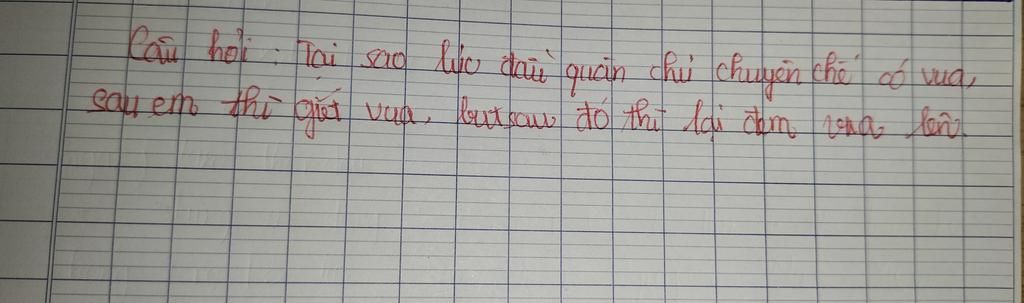 Câu hỏi : Tại sao lúc đầu quân chủ chuyên chế có vua,
sau em thì giết vua, but sau đó thì lại đem vua lên.